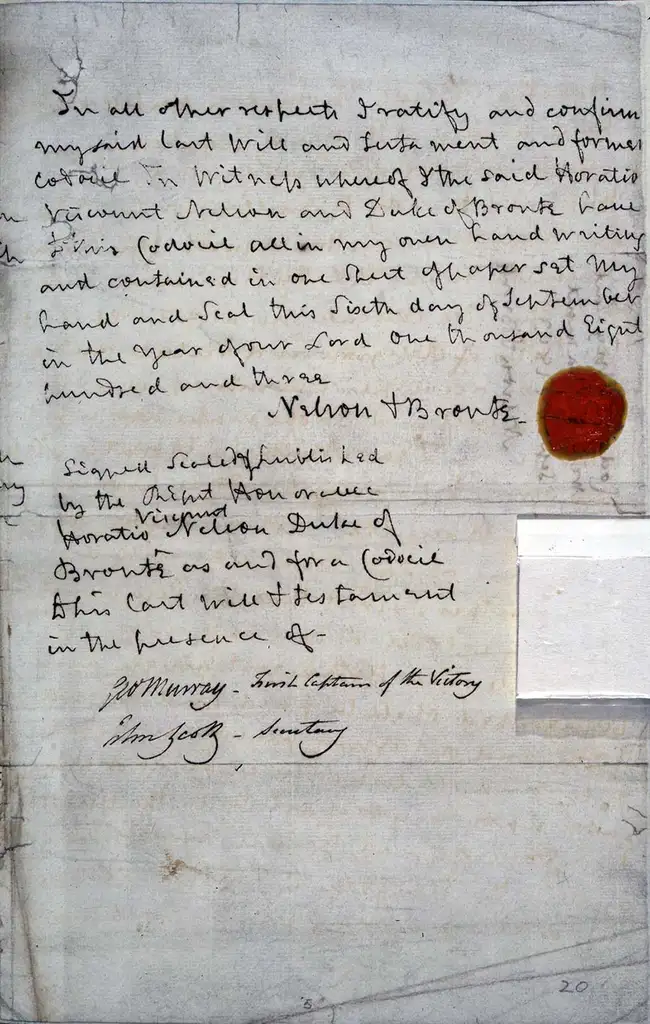 In all other respects I ratify and confirm
my said last will and testament and former
Codocil In Witness whereof I the said Horatio
Viscount Nelson and Duke of Bronte have
to this Codocil all in my own hand writing
and contained in one Sheet of paper set My
hand and Seal this Sixth day of September
in the year of our Lord One thousand Eight
hundred and three
Nelson & Bronte
Signed Sealed & Published
by the Right Honorable
Viscount
Horatio Nelson Duke of
Bronte as and for a Codocil
to his last will & testament
in the presence of -
Geo Murray - First Captain of the Victory
John Scott - Secretary
5
20